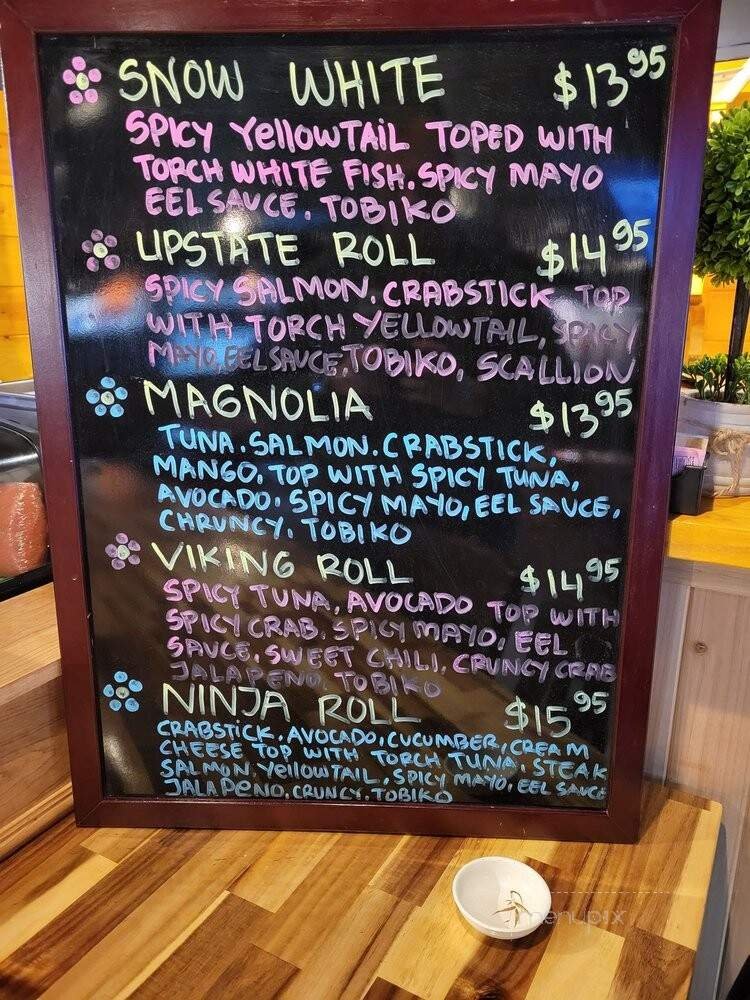 SNOW WHITE $13.95
SPICY YellowTAiL TOPED WITH
TORCH WHITE FISH. SPICY MAYO
EEL SAUCE. TOBIKO
UPSTATE ROLL $14.95
SPICY SALMON. CRABSTICK TOP
WITH TORCH YELLOWTAIL, SPICY
MAYO, EEL SAUCE, TOBIKO, SCALLION
MAGNOLIA $13.95
TUNA. SALMON. CRABSTICK,
MANGO, TOP WITH SPICY TUNA,
AVOCADO. SPICY MAYO, EEL SAUCE,
CHRUNCY. TOBIKO
VIKING ROLL $14.95
SPICY TUNA, AVOCADO TOP WITH
SPICY CRAB, SPICY MAYO, EEL
SAUCE, SWEET CHILI, CRUNCY CRAB
JALAPENO, TOBIKO
NINJA ROLL $15.95
CRABSTICK, AVOCADO, CUCUMBER, CREAM
CHEESE TOP WITH TORCH TUNA, STEAK
SALMON YellowTAIL, SPICY MAYO, EEL SAUCE
JALAPENO, CRUNCY, TOBIKO
menupix